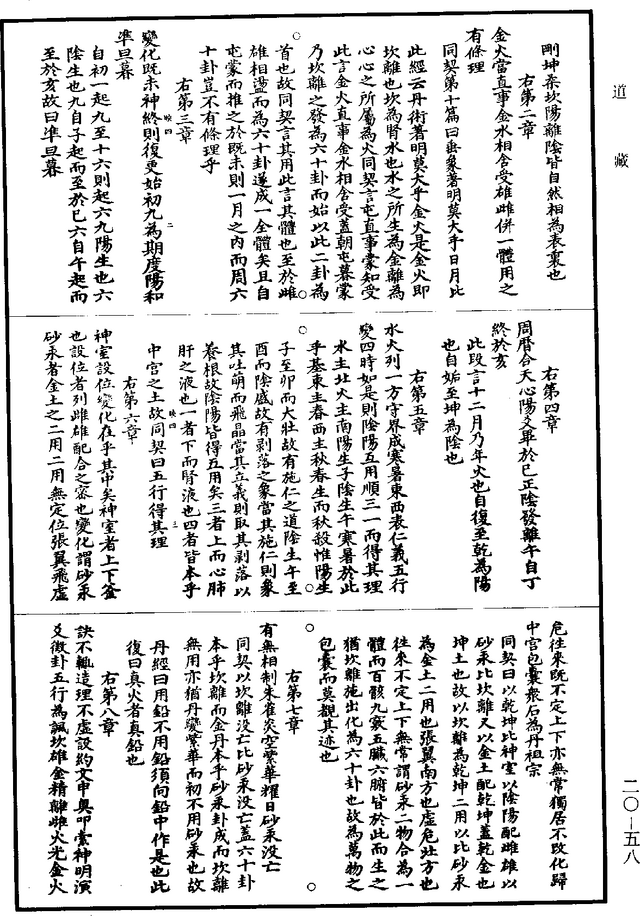 道藏
剛坤柔坎陽離陰皆自然相為表裏也
右第二章
金火當直事金水相含受雄雌併一體用之
有條理
同契第十篇曰垂象著明莫大乎日月比
此經云丹術著明莫大乎金火是金火即
坎離也坎為腎水也水之所生為金離為
心心之所屬為火同契言屯直事蒙知受
此言金火直事金水相含受蓋朝屯暮蒙
乃坎離之發為六十卦而始以此二卦為
首也故同契言其用此言其體也至於雌
雄相盪而為六十卦遂成一全體矣且自
屯蒙而推之於既未則一月之內而周六
十卦豈不有條理乎
右第三章
變化既未神終則復更始初九為期度陽和
準旦暮
自初一起九至十六則起六九陽生也六
陰生也九自子起而至於巳六自午起而
至於亥故曰準旦暮
右第四章
周曆合天心陽爻畢於巳正陰發離午自丁
終於亥
此段言十二月乃年火也自復至乾為陽
也自姤至坤為陰也
右第五章
水火列一方守界成寒暑東西表仁義五行
變四時如是則陰陽五用順三一而得其理
水主北火主南陽生子陰生午寒暑於此
乎基東主春西主秋春生而秋殺惟陽生
子至卯而大壯故有施仁之道陰生午至
酉而陰盛故有剝落之象當其施仁則象
其吐萌而飛晶當其立義則取其剝落以
養根故陰陽皆得五用矣三者上而心肺
肝之液也一者下而腎液也四者皆本乎
中宮之土故同契曰五行得其理
右第六章
神室設位變化在乎其中矣神室者上下釜
也設位者列雌雄配合之密也變化謂砂汞
砂汞者金土之二用二用無定位張翼飛虛
危往來既不定上下亦無常獨居不改化歸
中宮包囊衆石為丹祖宗
同契曰以乾坤比神室以陰陽配雌雄以
砂汞比坎離又以金土配乾坤蓋乾金也
坤土也故以坎離為乾坤二用以比砂汞
為金土二用也張翼南方也虛危北方也
往來不定上下無常謂砂汞二物合為一
體而百骸九竅五臟六腑皆於此而生之
猶坎離施出化為六十卦也故為萬物之
包囊而莫觀其迹也
右第七章
有無相制朱雀炎空紫華耀日砂汞沒亡
同契以坎離沒亡比砂汞沒亡蓋六十卦
本乎坎離而金丹本乎砂汞卦成而坎離
無用亦猶丹變紫華而初不用砂汞也故
丹經曰用鉛不用鉛須向鉛中作是也此
復曰真火者真鉛也
右第八章
訣不輒造理不虛設約文申奥叩索神明演
爻徵卦五行為諷坎雄金精離雌火光金火
二〇—五八